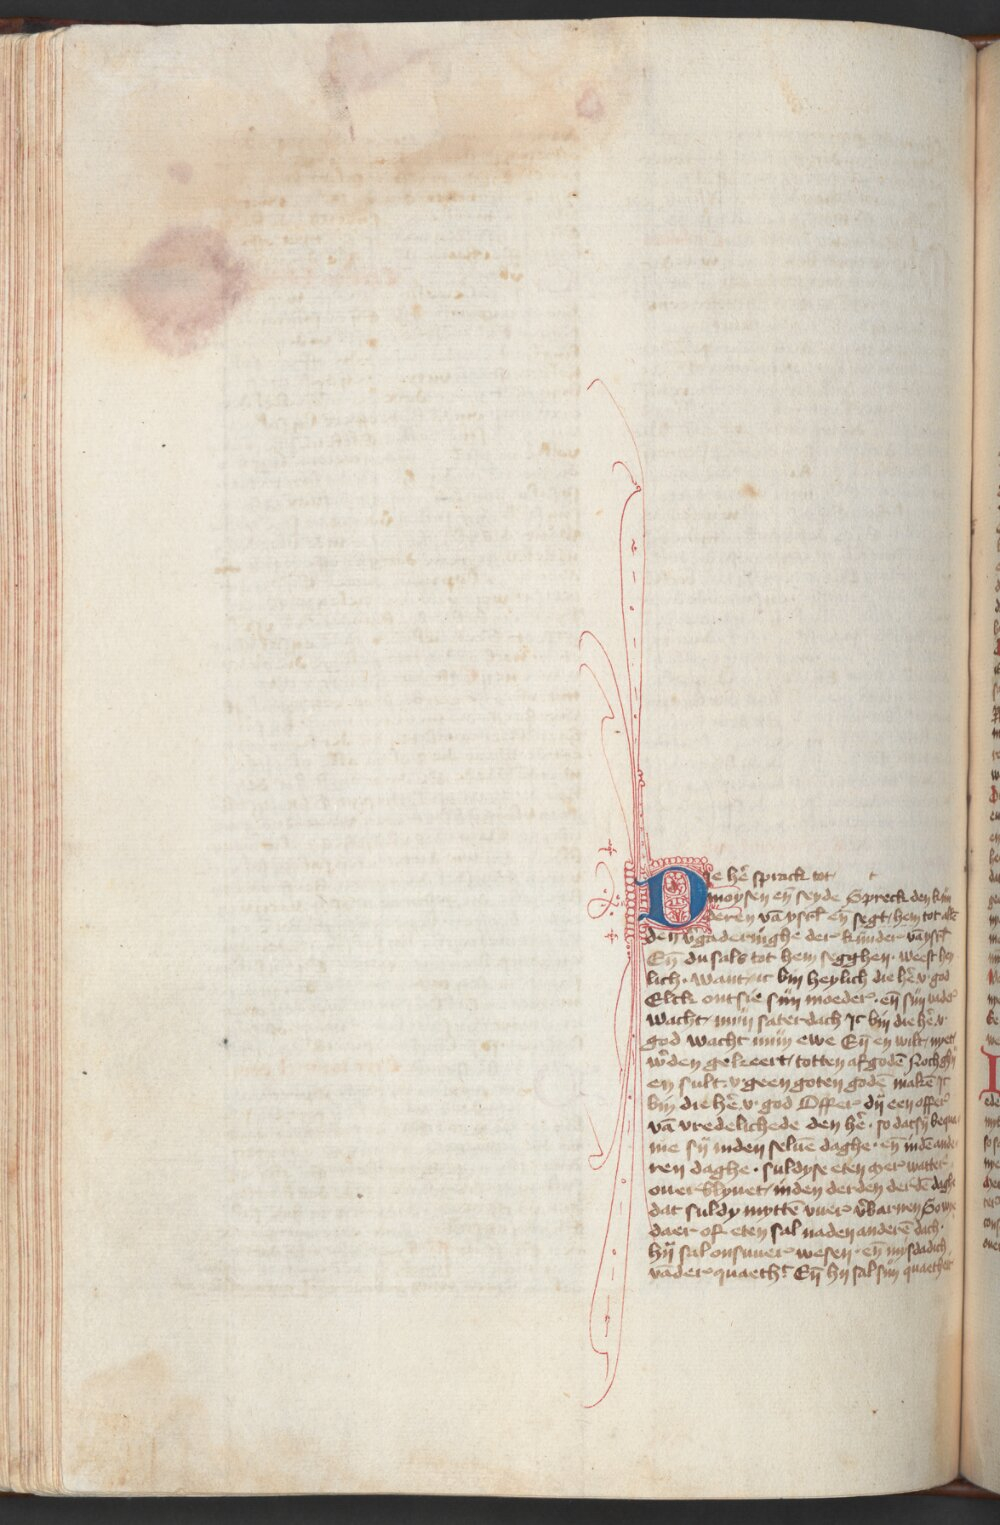 Die hē sprack tot
moysen en̄ seyde Spreck den kin
deren vā ysrl̄ en̄ segt hem tot alle
den v̄gaderinghe der kinder vā ysrl̄
En̄ du sals tot hem segghen · weest hey
lich · want ic bin heylich die hē v god
Elck ontsie sijn moeder · en̄ sijn vader
wacht mijn saterdach Jc bin die hē v
god wacht mijn ewe En̄ en wilt nyet
w̄den gekeert totten afgodē Noch ghij
en sult v geen goten godē makē Jc
bin die hē v god Offer dij een offer
vā vredelichede den hē · so dat sij beque
me sij inden seluē daghe · en̄ indē ande
ren daghe · suldyse eten Mer watter
ouer blyuet inden derden derdē daghe
dat suldy myttē vuer v̄barnen So wye
daer of eten sal na den anderē dach ·
hij sal onsuuer wesen · en̄ mysdadich
vāder quaetht̄ En̄ hij sal sijn quaetheit